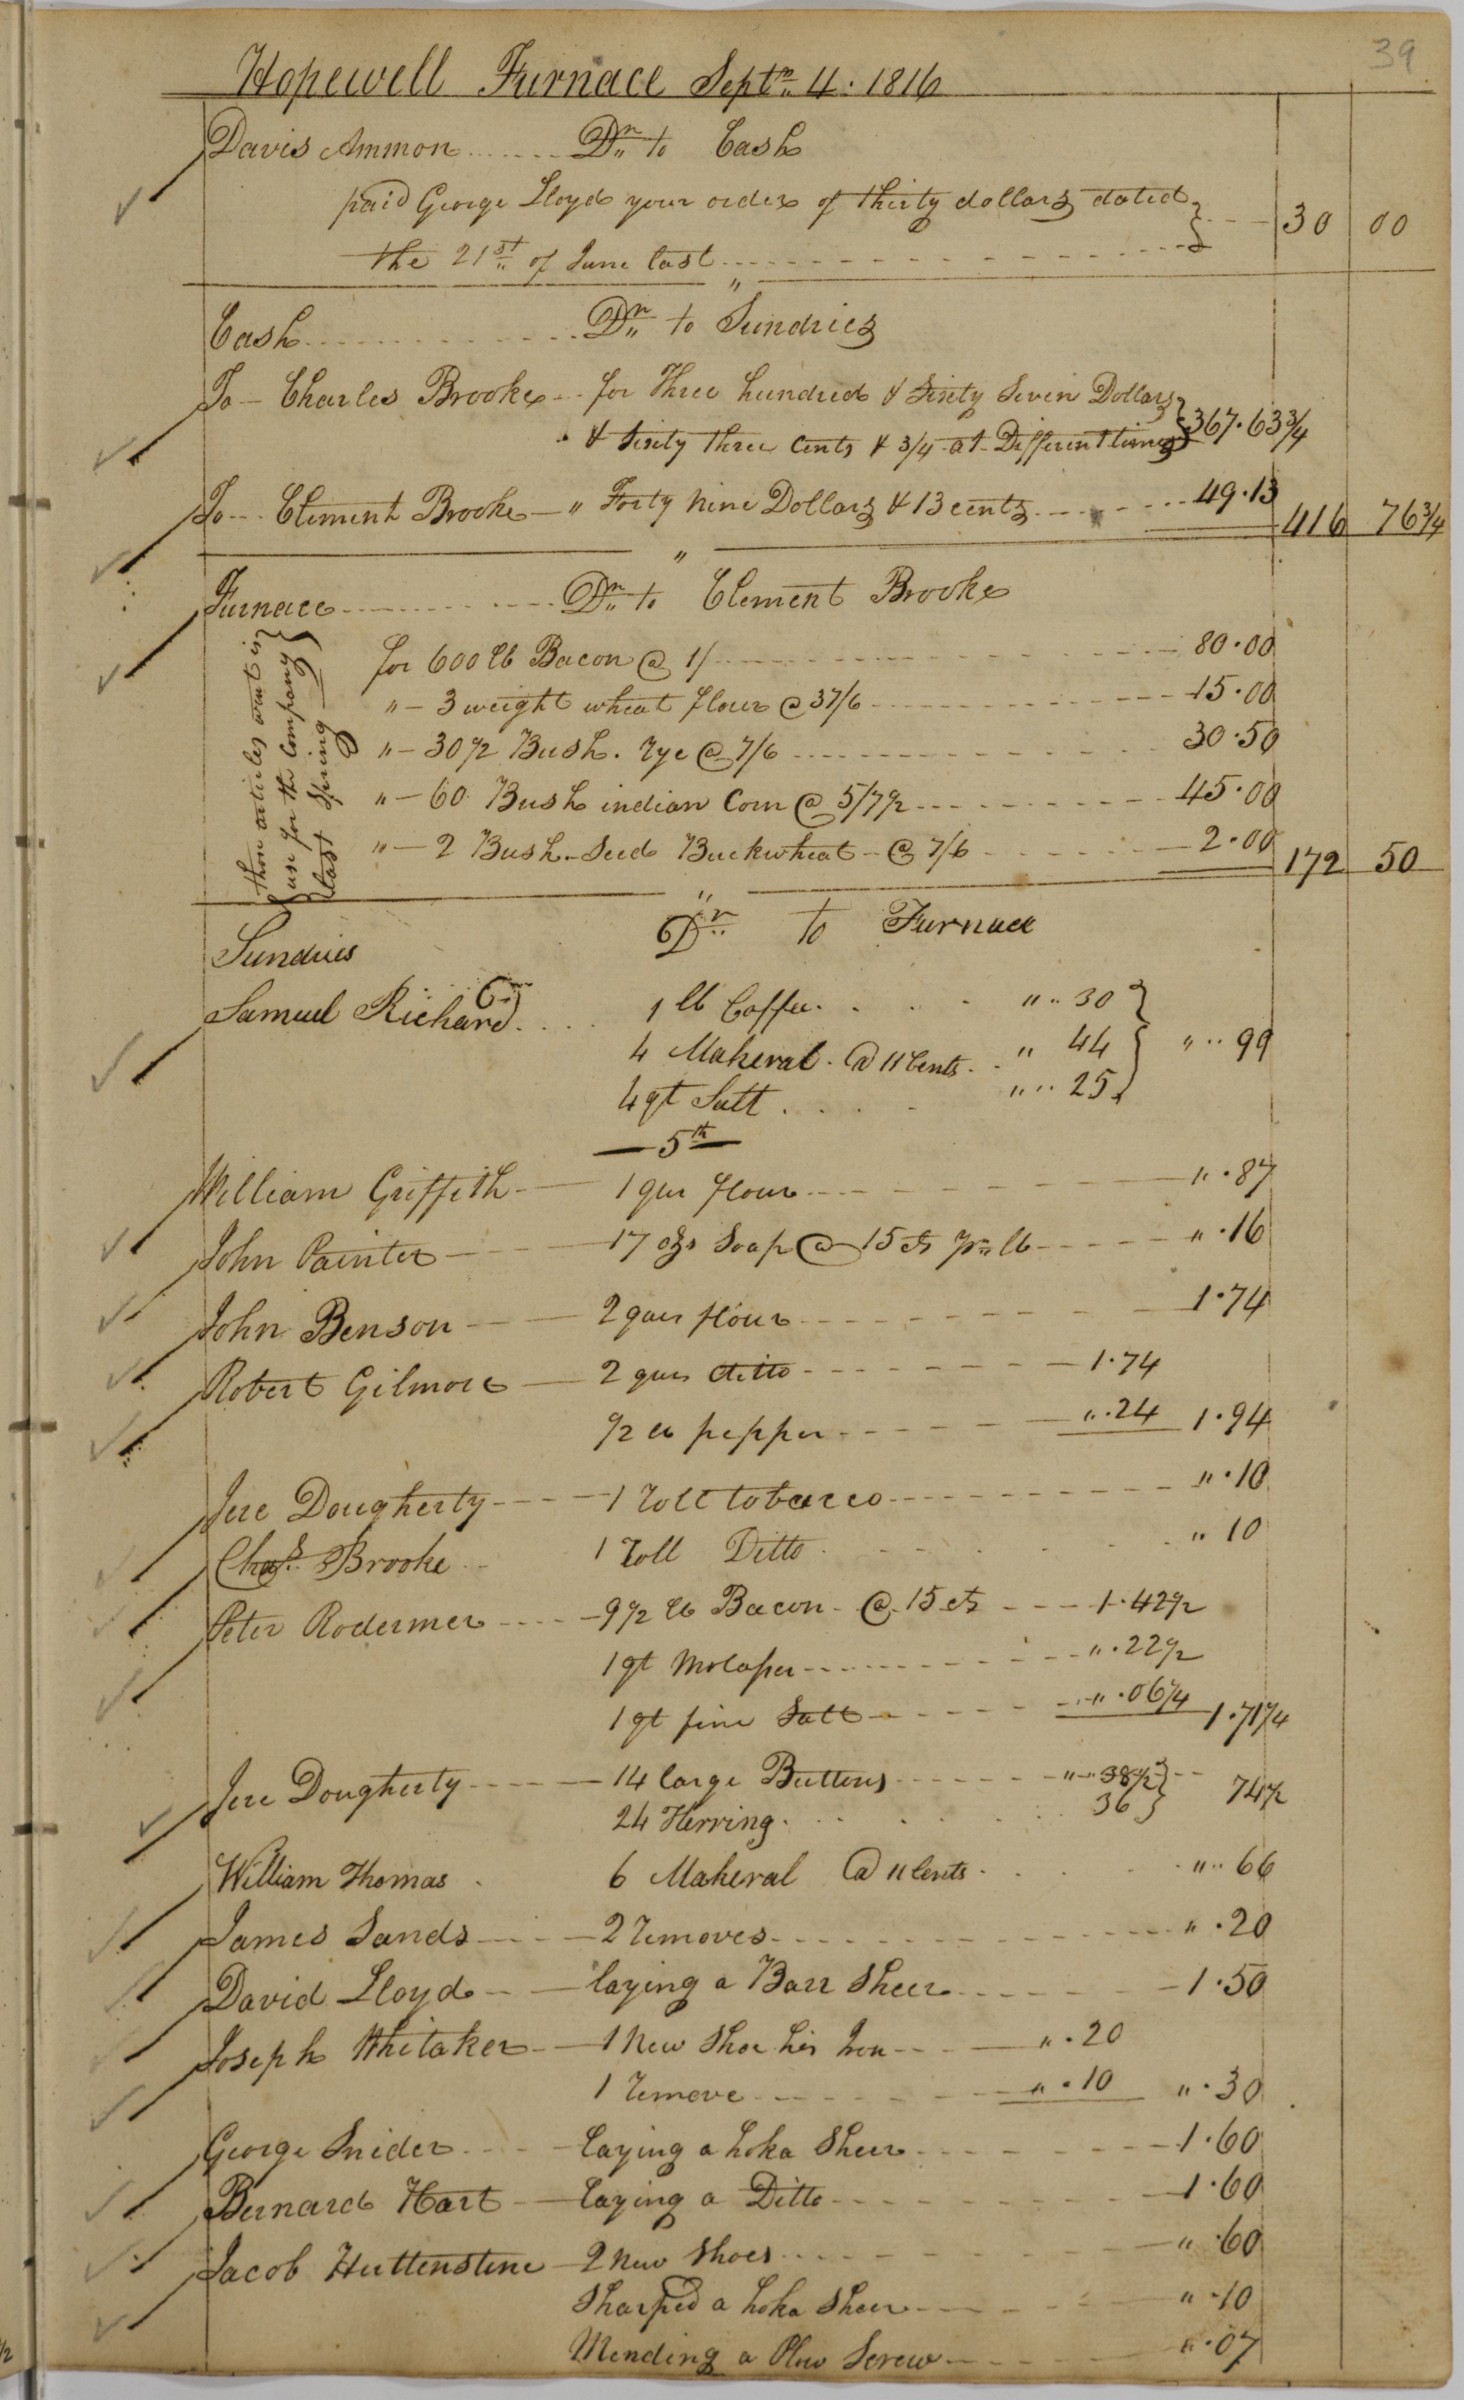 39
Hopewell Furnace Septr. 4. 1816
Davis Ammon Dr. to Cash
paid George Lloyd your order of thirty dollars dated
the 21st of June last 30 00
Cash Dr. to Sundries
To Charles Brooke for Three hundred & Sixty Seven Dollars
& Sixty three Cents & 3/4 at Different times 367.63 3/4
To Clement Brooke " Forty nine Dollars & 13 cents 49.13 416 76 3/4
Furnace Dr. to Clement Brooke
for 600 lb Bacon @ 1/ 80.00
" 3 weight wheat flour @ 37/6 15.00
" 30 1/2 Bush. rye @ 7/6 30.50
" 60 Bush indian Corn @ 5/7 1/2 45.00
" 2 Bush. Seed Buckwheat @ 7/6 2.00 172 50
articles
use for the Company
last Spring
Sundries Dr. to Furnace
Samuel Richard 1 lb Coffee " 30
4 Makeral @ 11 Cents " 44 " 99
4 qt Salt " 25
5th
William Griffith 1 qur flour " .87
John Painter 17 ozs Soap @ 15 cts pr. lb " .16
John Benson 2 qurs flour 1.74
Robert Gilmore 2 qurs ditto 1.74
1/2 lb pepper " .24 1.94
Jere Dougherty 1 roll tobacco " .10
Chas. Brooke 1 roll Ditto " 10
Peter Rodermer 9 1/2 lb Bacon @ 15 cts 1.42 1/2
1 qt Molasses " .22 1/2
1 qt fine Salt " .06 1/4 1.71 1/4
Jere Dougherty 14 large Buttons " 38 1/2
24 Herring 36 74 1/2
William Thomas 6 Makeral @ 11 Cents " 66
James Sands 2 removes " .20
David Lloyd laying a Barr Sheer 1.50
Joseph Whitaker 1 New Shoe his Iron " .20
1 remove " .10 " .30
George Snider laying a hoka Sheer 1.60
Bernard Hart laying a Ditto 1.60
Jacob Huttenstine 2 new Shoes " .60
Sharped a hoka Sheer " .10
Mending a Plow Screw " .07